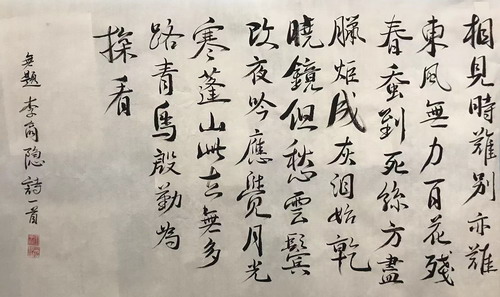 相見時難別亦難
東風無力百花殘
春蚕到死絲方盡
臘炬成灰泪始乾
曉鏡但愁雲鬢
改夜吟應覺月光
寒蓬山此去無多
路青鳥殷勤為
探看
無題 李商隐詩一首